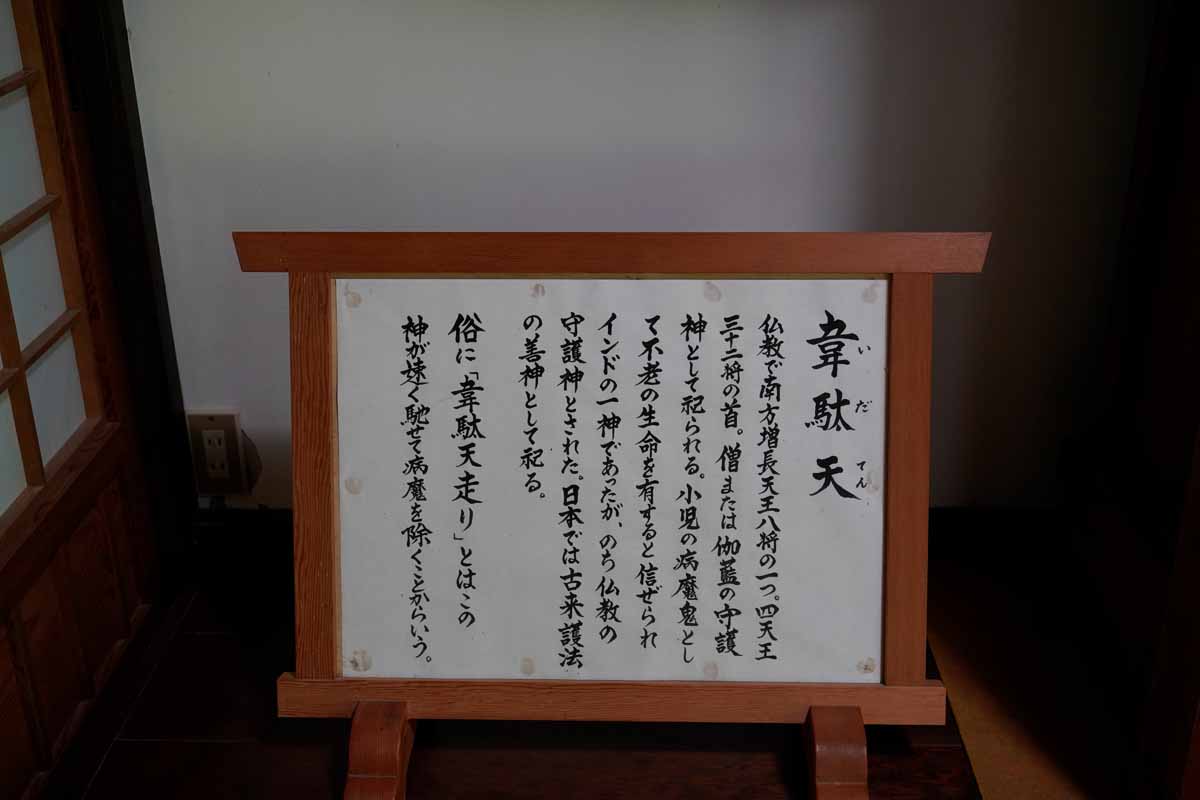 韋駄天
いだてん
仏教で南方増長天王八将の一つ。四天王
三十二将の首。僧または伽藍の守護
神として祀られる。小児の病魔鬼とし
て不老の生命を有すると信ぜられ
インドの一神であったが、のち仏教の
守護神とされた。日本では古来護法
の善神として祀る。
俗に「韋駄天走り」とはこの
神が速く馳せて病魔を除くことからいう。